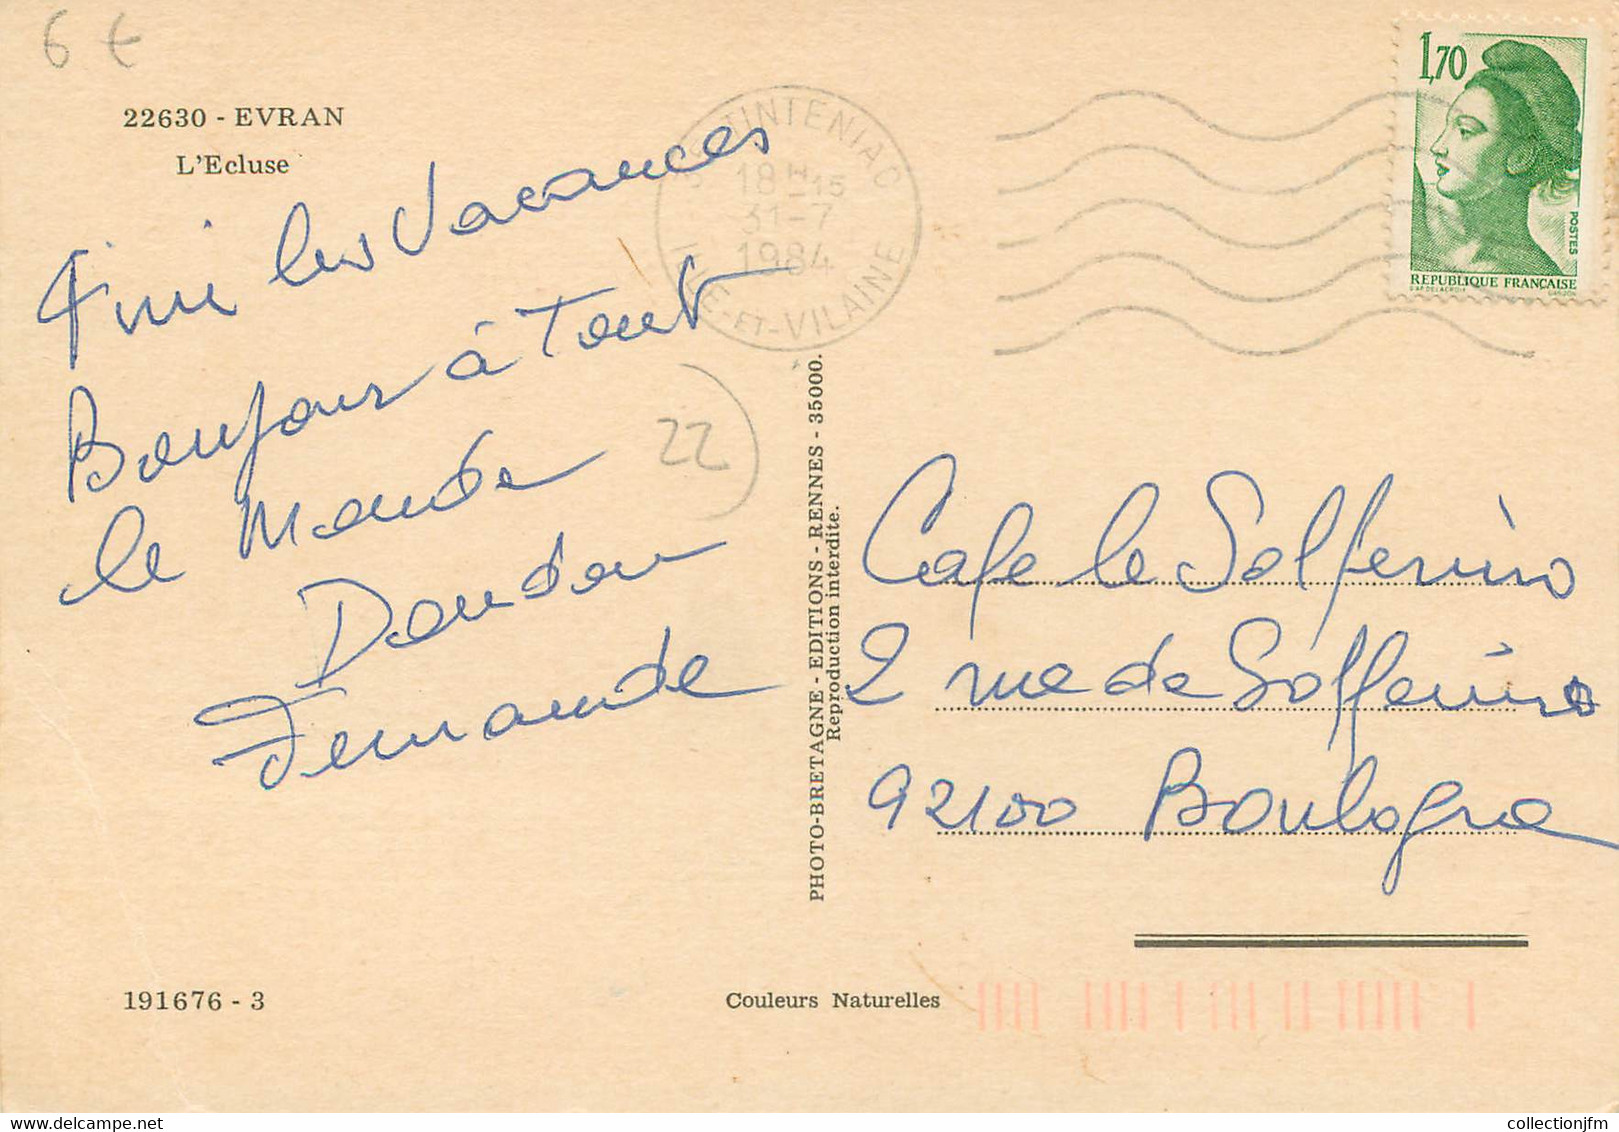 6 €
22630 - EVRAN
L'Ecluse
Fini les Vacances
Bonjour à Tout
le Monde
Doudou
Fernande
22
TINTENIAC
18H-15
31-7
1984
ILLE-ET-VILAINE
1,70
POSTES
REPUBLIQUE FRANÇAISE
D'AP. DELACROIX
GANDON
PHOTO-BRETAGNE - EDITIONS - RENNES - 35000.
Reproduction interdite.
Cafe le Solferino
2 rue de Solferino
92100 Boulogne
191676 - 3
Couleurs Naturelles
collectionjfm